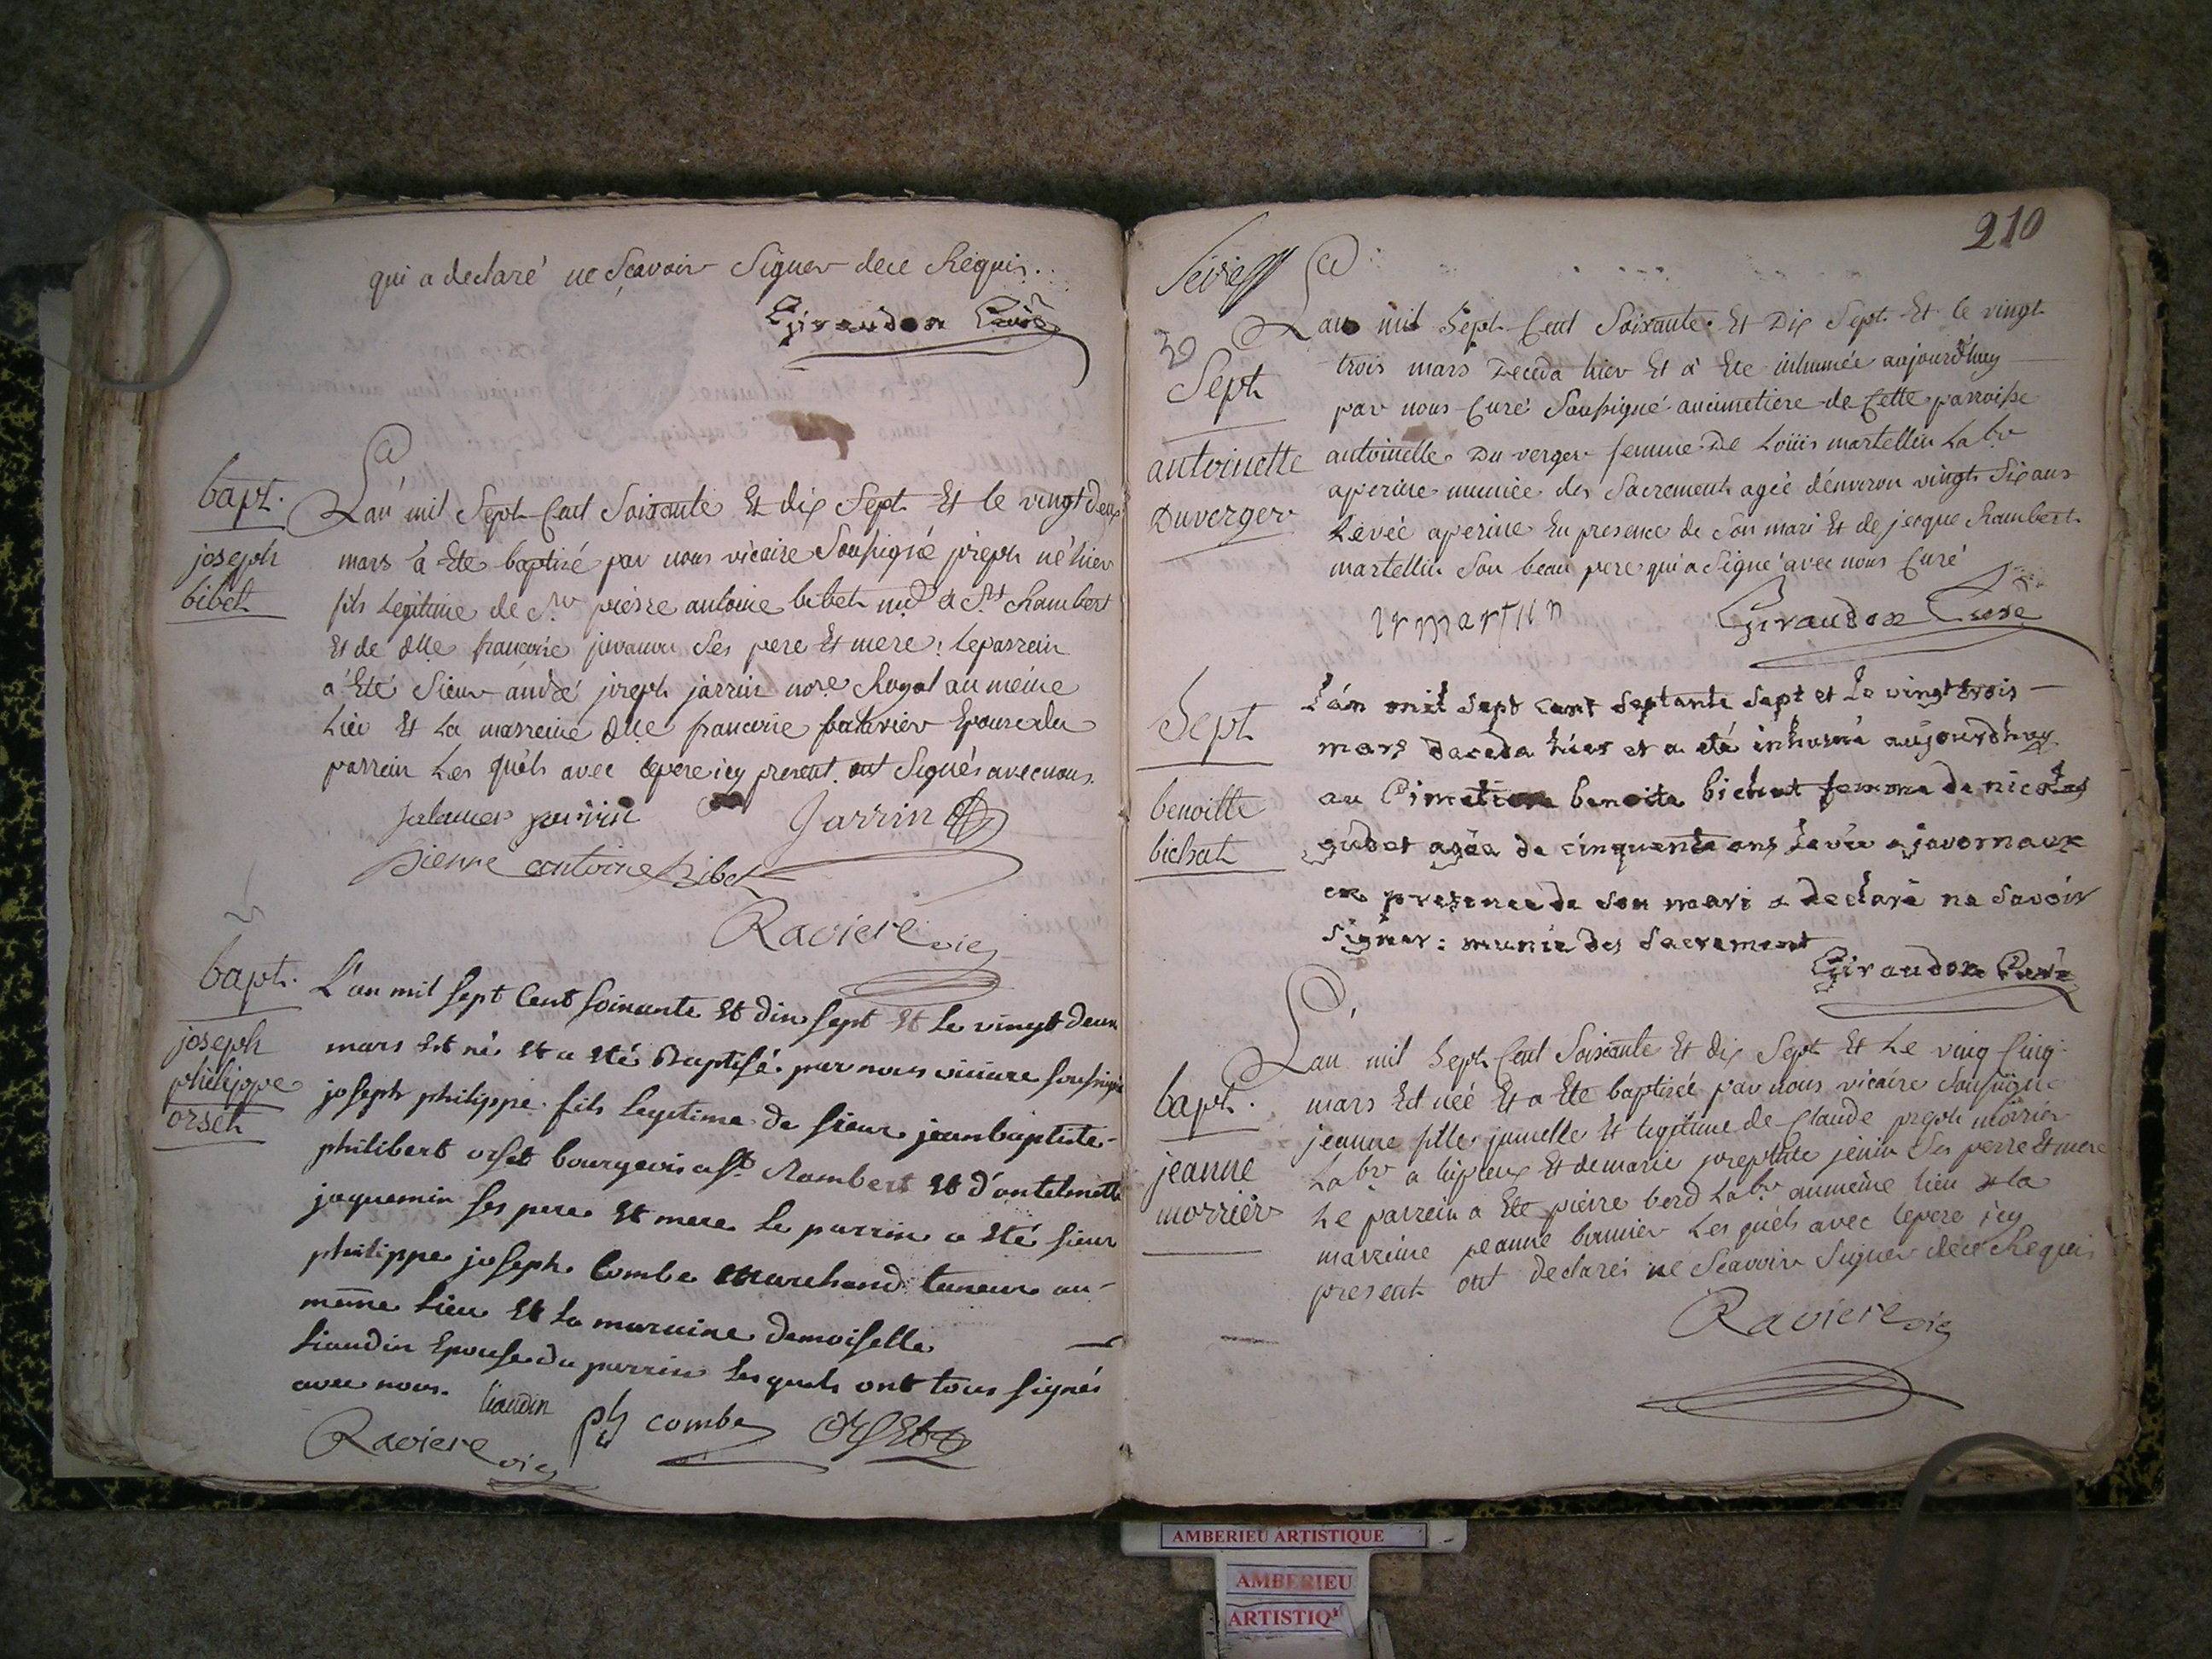 qui a declaré ne Scavoir Signer dece Requis.
Giraudon Curé
bapt.
joseph
bibet
L'an mil Sept Cent Soixante Et dix Sept Et le vingt deux
mars a Ete baptisé par nous vicaire Soussigné joseph né hier
fils Legitime de Sr pierre antoine bibet md a St Rambert
Et de dlle francoise juvanon Ses pere Et mere: le parrein
a Eté Sieur andré joseph jarrin nore Royal au méme
Lieu Et La marreine dlle francoise Epouse du
parrein Les quels avec le pere icy present ont Signés avec nous.
jarrin
Jarrin
pierre antoine bibet
Raviere vic
bapt.
joseph
philippe
orset
L'an mil sept Cent soixante Et dix sept Et Le vingt deux
mars Est né Et a Eté Baptisé par nous vicaire soussigné
joseph philippe fils Legitime de sieur jean baptiste
philibert orset bourgeois a St Rambert Et d'antelmette
jaquemin ses pere Et mere Le parrin a Eté sieur
philippe joseph Combe Marchand taneur au
même Lieu Et La maraine demoiselle
Liaudin Epouse du parrin Les quels ont tous signés
avec nous.
liaudin
ph combe
ORSEt
Raviere vic
210
Lan mil Sept Cent Soixante Et Dix Sept Et le vingt
trois mars Deceda hier Et a Ete inhumée aujourdhuy
par nous Curé Soussigné au cimetiere de Cette parroisse
antoinette Du verger femme De Loüis martellin Labr
aperine munice des Sacrements agée d'énviron vingt Six ans
Levée aperine En presence de Son mari Et de jacque Rambert
martellin Son beau pere qui a Signé avec nous Curé
Giraudon Curé
Sept
antoinette
Duverger
Sept
benoitte
bichat
L'an mil sept cent septante sept et le vingt trois
mars deceda hier et a eté inhumé aujourdhuy
au Cimetiere benoite bichat femme de nicolas
gudet agée de cinquente ans Levée a javornaux
en presence de son mari a declaré ne savoir
signer: munie des sacrement
Giraudon Curé
bapt.
jeanne
morrier
Lan mil Sept Cent Soixante Et dix Sept Et Le ving Cinq
mars Est née Et a Ete baptisée par nous vicaire Soussigné
jeanne fille jumelle Et legitime de Claude joseph morrier
Labr a Et de marie josephte jenin Ses perre Et mere
Le parrein a Ete pierre bord Labr au méme lieu Et la
marreine jeanne bannier Les quels avec le pere icy
present ont declarés ne Scavoir Signer dece Requis
Raviere vic
AMBERIEU ARTISTIQUE
AMBERIEU
ARTISTIQ